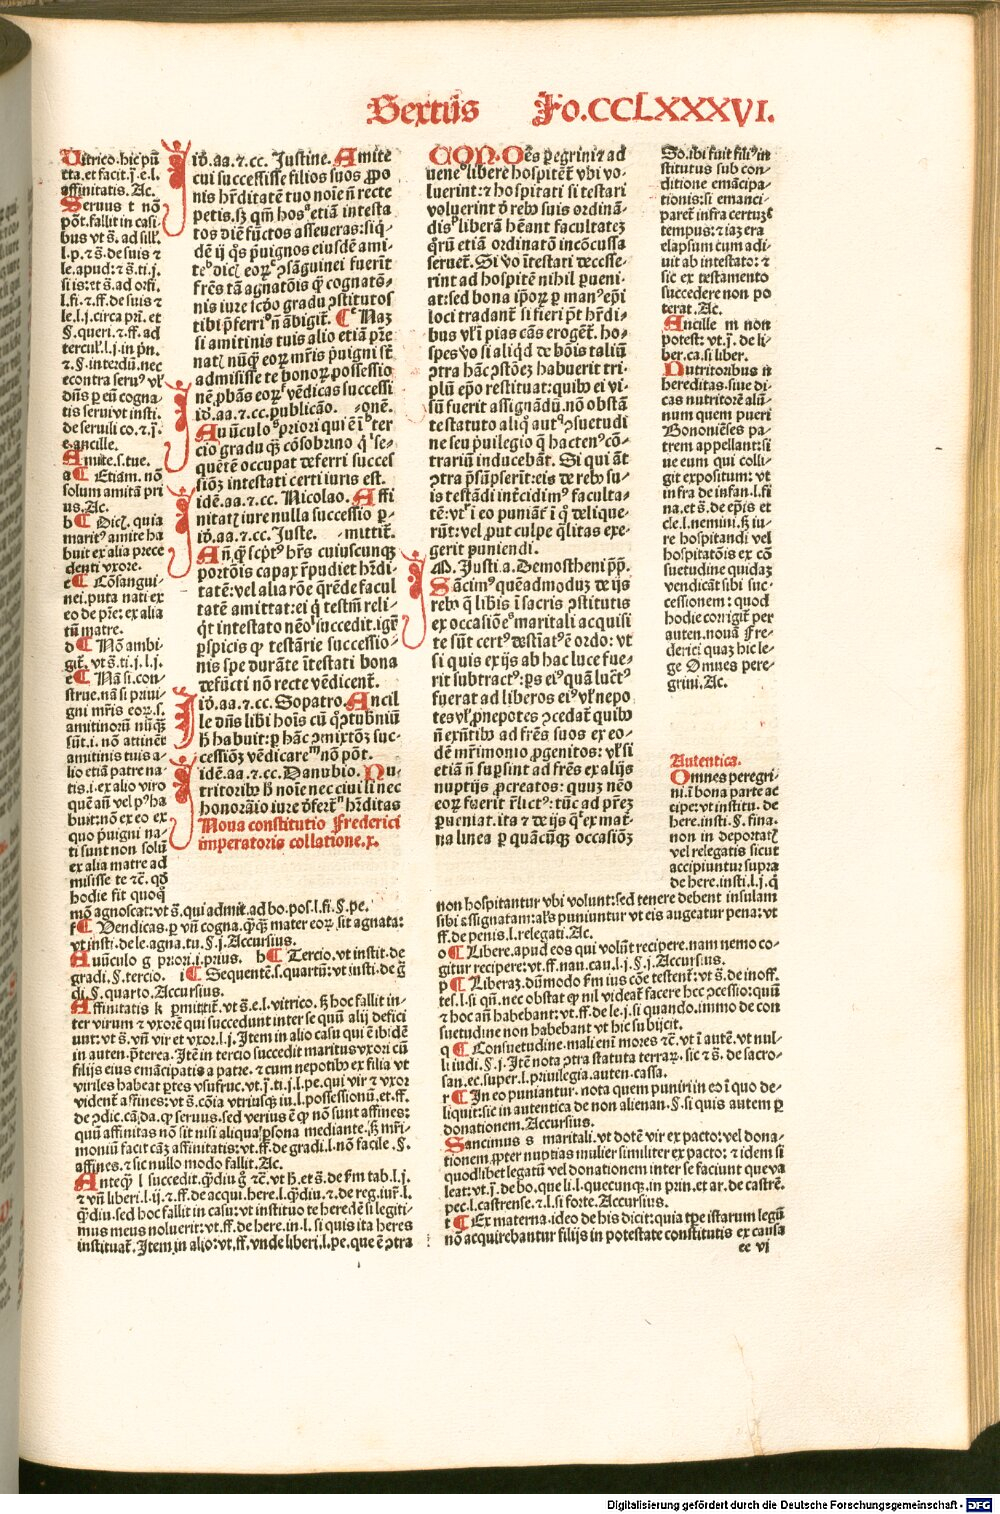 Sextus Fo.CCLXXXVI.
Uitrico.hic pūc
tta.et facit.j̄.e.l.
affinitatis. Ac.
Seruus t nō
pōt.fallit in casi
bus vt s̄. ad sill'.
l.p.⁊ s̄.de suis ⁊
le.apud:⁊ s̄.ti.j.
si is:et s̄.ad orfi.
l.fi.⁊.ff.de suis ⁊
le.l.j.circa prī. et
§.queri.⁊.ff.ad
tercul'.l.j.in pn̄.
⁊.§.interdū.nec
econtra seruꝰ vl'
dn̄s ꝑ eū cogna-
tis seruivt insti.
de seruili co.⁊.j̄.
e.ancille.
Amite.s.tue.
a Etiam. nō
solum amitā pri
us.Ac.
b Dict. quia
maritꝰ amite ha
buit ex alia prece
denti vxore.
c Cōsangui-
nei.puta nati ex
eo de pr̄e: ex alia
tn̄ matre.
d Nō ambi-
git̄. vt s̄.ti.j.l.j.
e Nā si.con-
strue.nā si priui-
gni mr̄is eoꝝ.s.
amitinorū nūqꝫ
sūt.i. nō attinēt
amitinis tuis a-
lio etiā patre na-
tis.i.ex alio viro
que an̄ vel pꝰ ha
buit:nō ex eo ex
quo p̄uigni na-
ti sunt non solū
ex alia matre ad
misisse te ⁊c̄. qđ
hodie fit quoqꝫ
nō agnoscat:vt s̄.qui admit.ad bo.pos.l.fi.§.pe.
f Vendicas.ꝑ vn̄ cogna.qꝫqꝫ mater eoꝝ sit agnata:
vt insti.de le.agna.tu.§.j.Accursius.
Auūculo g priori.i.prius. h Tercio.vt instit.de
gradi.§.tercio. i Sequentē.s.quartū:vt insti.de g̃
di.§.quarto.Accursius.
Affinitatis k ꝑmittit̄.vt s̄.e.l.vitrico.sꝫ hoc fallit in-
ter virum ⁊ vxorē qui succedunt inter se quū alij defici
unt:vt s̄.vn̄ vir et vxor.l.j.Item in alio casu qui ē ibidē
in auten.p̄terea.Itē in tercio succedit maritus vxori cū
filijs eius emācipatis a patre.⁊ cum nepotibꝰ ex filia vt
viriles habeat ꝑtes vsufruc.vt.j̄.ti.j.l.pe.qui vir ⁊ vxor
vident̄ affines:vt s̄.cōia vtriusqꝫ iu.l.possessionū.et.ff.
de ↄdic.cā.da.qꝫ seruus.sed verius ē qꝫ nō sunt affines:
quū affinitas nō sit nisi aliqua ꝑsona mediante.sꝫ mr̄i-
moniū facit cāz affinitatis:vt.ff.de gradi.l.nō facile.§.
affines.⁊ sic nullo modo fallit.Ac.
Anteqꝫ l succedit.qꝫdiu g̃ ⁊c̄.vt h̄.et s̄.de fm tab.l.j.
⁊ vn̄ liberi.l.ij.⁊.ff.de acqui.here.l.qꝫdiu.⁊.de reg.iur̄.l.
qꝫdiu.sed hoc fallit in casu:vt instituo te heredē si legiti-
mus meus noluerit:vt.ff.de here.in.l.si quis ita heres
instituat̄.Item in alio:vt.ff.vnde liberi.l.pe.que ē ↄtra
Iiđ.aa.⁊.cc. Justine. Amite
cui successisse filios suos ꝓpo
nis hr̄ditatē tuo noīe n̄ recte
petis.sꝫ qm̄ hosᵉ etiā intesta
tos diē fūctos asseueras:si q̄-
dē ij q̄s p̄uignos eiusdē ami-
teᵇ dict eoꝝᶜ ↄsāguinei fuerīt
fr̄es tā agnatōis qꝫ cognatō-
nis iure scđo gradu ↄstitutos
tibi p̄ferri n̄ ābigit̄. ᵉNaꝫ
si amitinis tuis alio etiā pr̄e
natꝭ nūqꝫ eoꝝ mr̄is p̄uigni sīt
admisisse te bonoꝝ possessio
nē ꝓbās eoꝝᶠ vēdicas successi
iđ.aa.⁊.cc.publicāo. -onē.
Auūculoᵍ priori qui ē īʰter
cio gradu qꝫ cōsobrino qꝭⁱse-
quētē occupat deferri succes
siōꝫ intestati certi iuris est.
idē.aa.⁊.cc. Nicolao. Affi
nitatꝭ iure nulla successio ꝑ-
iđ.aa.⁊.cc. Juste. -mittit̄.
An̄.qꝫ scptꝰ hr̄s cuiuscunqꝫ
portōis capax r̄pudiet hr̄di-
tatē:vel alia rōe q̄rēde facul
tatē amittat:ei q̄ testm̄ reli-
q̄t intestato nēoˡ succedit.igr̄
ꝑspicis qꝫ testārie successio-
nis spe durāte ītestati bona
defūcti nō recte vēdicent̄.
Iiđ.aa.⁊.cc.Sopatro.Ancil
le dn̄s libī hoīs cū qꝭ ↄtubniū
h̄ habuit:ꝑ hāc ↄmixtōꝫ suc-
cessiōꝫ vēdicareᵐ nō pōt.
idē.aa.⁊.cc.Danubio. Nu-
tritoribꝰ h̄ noīe nec ciui li nec
honorāio iure dēfert̄ⁿ hr̄ditas
Noua constitutio Frederici
imperatoris collatione.x.
CON.Oēs ꝑegrini ⁊ ad
uene°libere hospitēt̄ vbi vo-
luerint:⁊ hospitati si testari
voluerint đ rebꝰ suis ordinā-
disᵖliberā hēant facultateꝫ
qꝫrū etiā ordinatō incōcussa
seruet̄. Si vo ītestati decesse-
rint ad hospitē nihil ꝑueni-
at:sed bona ipoꝝ ꝑ manꝰ epī
loci tradant̄ si fieri pt̄ hr̄di-
bus vl'ī pias cās erogēt̄. ho-
spes vo si aliqđ de bōis taliū
ↄtra hāc ↄstōeꝫ habuerit tri-
plū epō restituat:quibꝰ ei vi-
sū fuerit assignādū.nō obstā
te statuto aliqꝭ aut qꝫ ↄsuetudi
ne seu p̄uilegio qꝫ hactenꝰ cō-
trariū inducebāt. Si qui āt
ↄtra p̄sūpserīt:eis de rebꝰ su-
is testādi īnt̄cidimꝰ faculta-
tē:vtʳ ī eo puniāt ī qꝭ delique-
rūt:vel ꝓut culpe qꝫlitas exe-
gerit puniendi.
M. Justi.a.Demostheni p̄p̄.
Sācimꝰ quēadmoduꝫ de ijs
rebꝰ qꝫ libīs ī sacris ↄstitutis
ex occasiōeˢ maritali acquisi
te sūt certꝰ destīatꝰ ē ordo: vt
si quis ex ijs ab hac luce fue-
rit subtractꝰ:ꝑs eiꝰ quā luct̄ꝰ
fuerat ad liberos eiꝰ vl' nepo
tes vl' ꝓnepotes ↄcedat̄ quibꝰ
n̄ exn̄tibꝰ ad fr̄es suos ex eo-
dē mr̄imonio ꝓgenitos: vl' si
etiā n̄ suꝑsint ad fr̄es ex alijs
nuptijs ꝓcreatos: quuꝫ nēo
eoꝝ fuerit r̄lictꝰ: tūc ad pr̄eꝫ
ꝑueniat.ita ⁊ de ijs qꝫᵗ ex mat̄-
na linea ꝑ quācūqꝫ occasiōꝫ
So.ibi fuit filiꝰ in
stitutus sub con-
ditione emācipa-
tionis:si emanci-
paret̄ infra certuꝫ
tempus: ⁊ iaꝫ era
elapsum cum adi-
uit ab intestato: ⁊
sic ex testamento
succedere non po
terat.Ac.
Ancille m non
potest: vt.j̄. de li-
ber.ca.si liber.
Nutritoribus n
hereditas.siue di-
cas nutritorē alū-
num quem pueri
Bononiēses pa-
trem appellant:si
ne eum qui colli-
git expositum: vt
infra de infan.l.fi
na.et s̄.de epīs et
cle.l.nemini.sꝫ iu-
re hospitandi vel
hospitatōis ex cō
suetudine quidaꝫ
vendicāt sibi suc-
cessionem: quod
hodie corrigit̄ per
auten.nouā Fre-
derici quaꝫ hic le-
ge Omnes pere-
grini.Ac.
Autentica.
Omnes peregri-
ni.i bona parte ac
cipe:vt institu. de
here.insti.§. fina.
non in deportatꝭ
vel relegatis sicut
accipiuntur supra
de here.insti.l.j.q̄
non hospitantur vbi volunt:sed tenere debent insulam
sibi assignatam:als̄ puniuntur vt eis augeatur pena:vt
ff.de penis.l.relegati.Ac.
o Libere.apud eos qui volūt recipere.nam nemo co-
gitur recipere:vt.ff.nau.cau.l.j.§.j.Accursius.
p Liberaꝫ.dūmodo fm ius cōe testent̄:vt s̄.de inoff.
tes.l.si qn̄.nec obstat qꝫ nil videat̄ facere hec ↄcessio:quū
⁊ hoc an̄ habebant:vt.ff.de le.j.si quando.immo de con
suetudine non habebant vt hic subijcit.
q Consuetudine.mali enī mores ⁊c̄.vt ī autē.vt nul-
li iudi.§.j.Itē nota ↄtra statuta terraꝝ.sic ⁊ s̄.de sacro-
san.ec.super.l.priuilegia.auten.cassa.
r In eo puniantur. nota quem puniri in eo ī quo de-
liquit:sic in autentica de non alienan.§.si quis autem ꝑ
donationem.Accursius.
Sancimus s maritali.vt dotē vir ex pacto:vel dona-
tionem ꝓpter nuptias mulier similiter ex pacto: ⁊ idem si
quodlibet legatū vel donationem inter se faciunt que va
leat:vt.j̄.de bo.que li.l.quecunqꝫ.in prin.et ar.de castrē.
pec.l.castrense.⁊.l.si forte.Accursius.
t Ex materna.ideo de his dicit:quia tꝑe istarum legū
nō acquirebantur filijs in potestate constitutis ex causa
ee vj
Digitalisierung gefördert durch die Deutsche Forschungsgemeinschaft - DFG